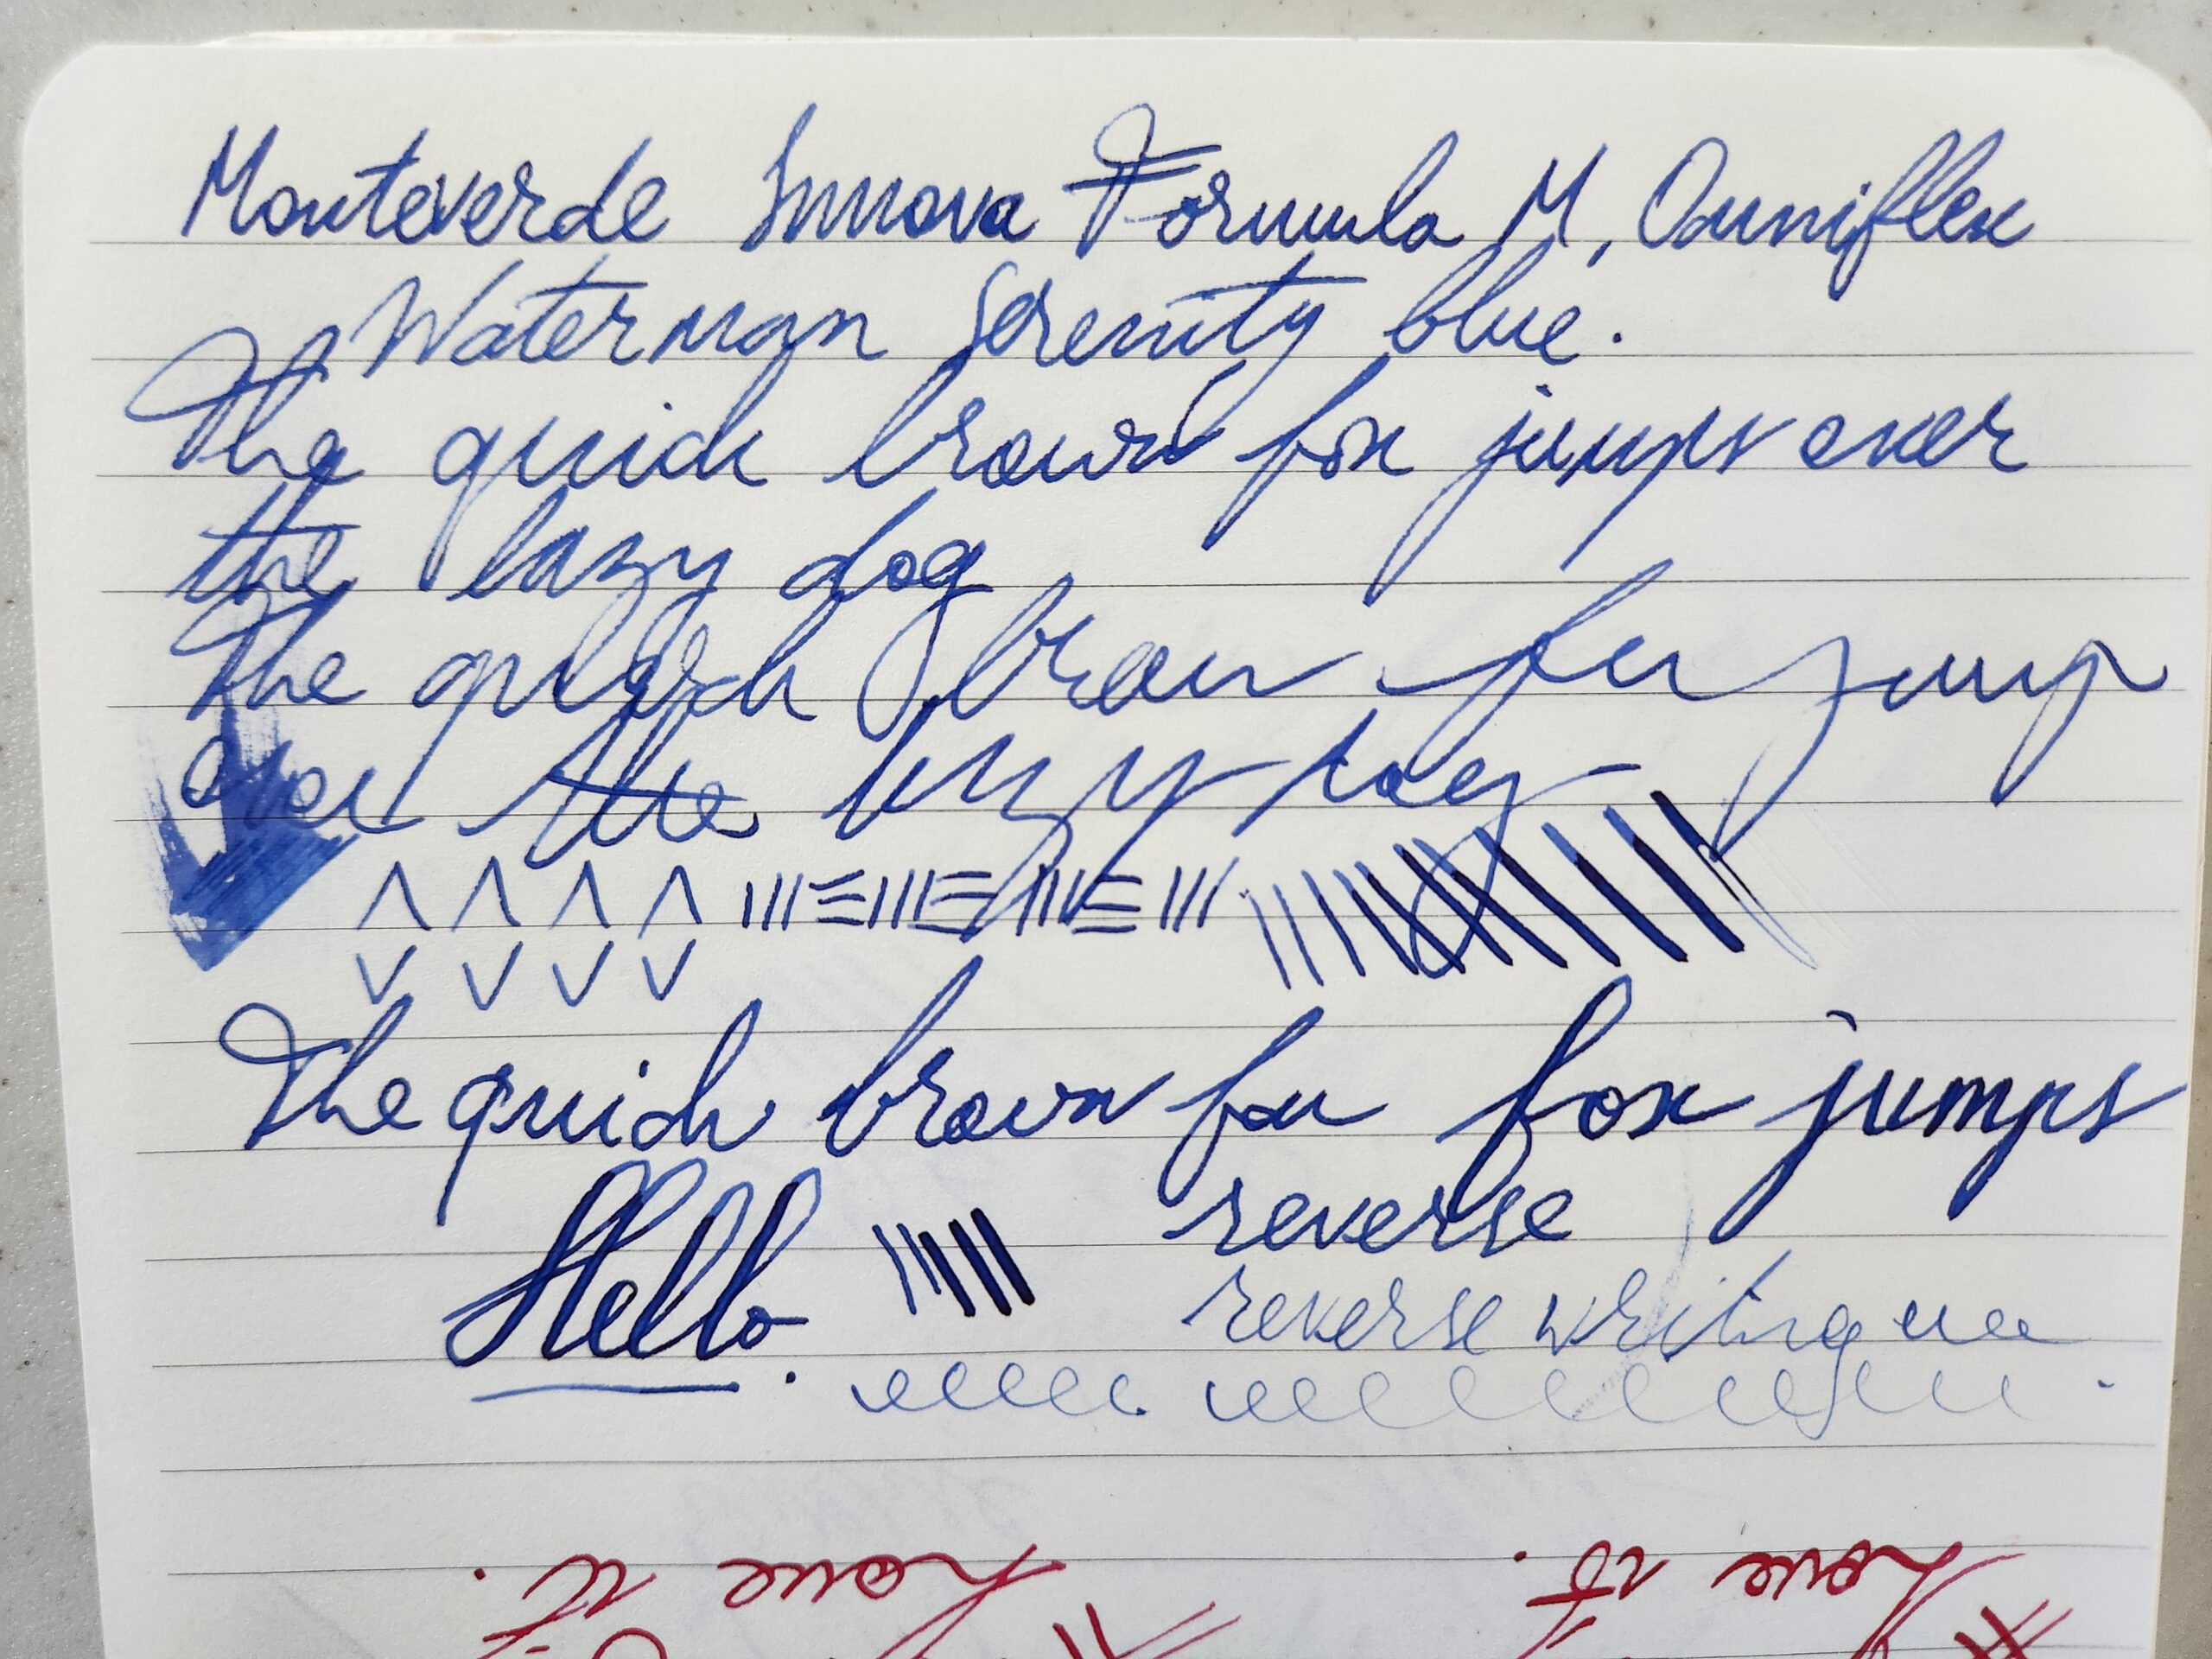 Monteverde Innova Formula M, Omniflex
Waterman Serenity blue.
The quick brown fox jumps over
the lazy dog
The quick brown fox jump
over the lazy dog
The quick brown fox fox jumps
Hello. reverse
reverse writing
Love it. Love it.